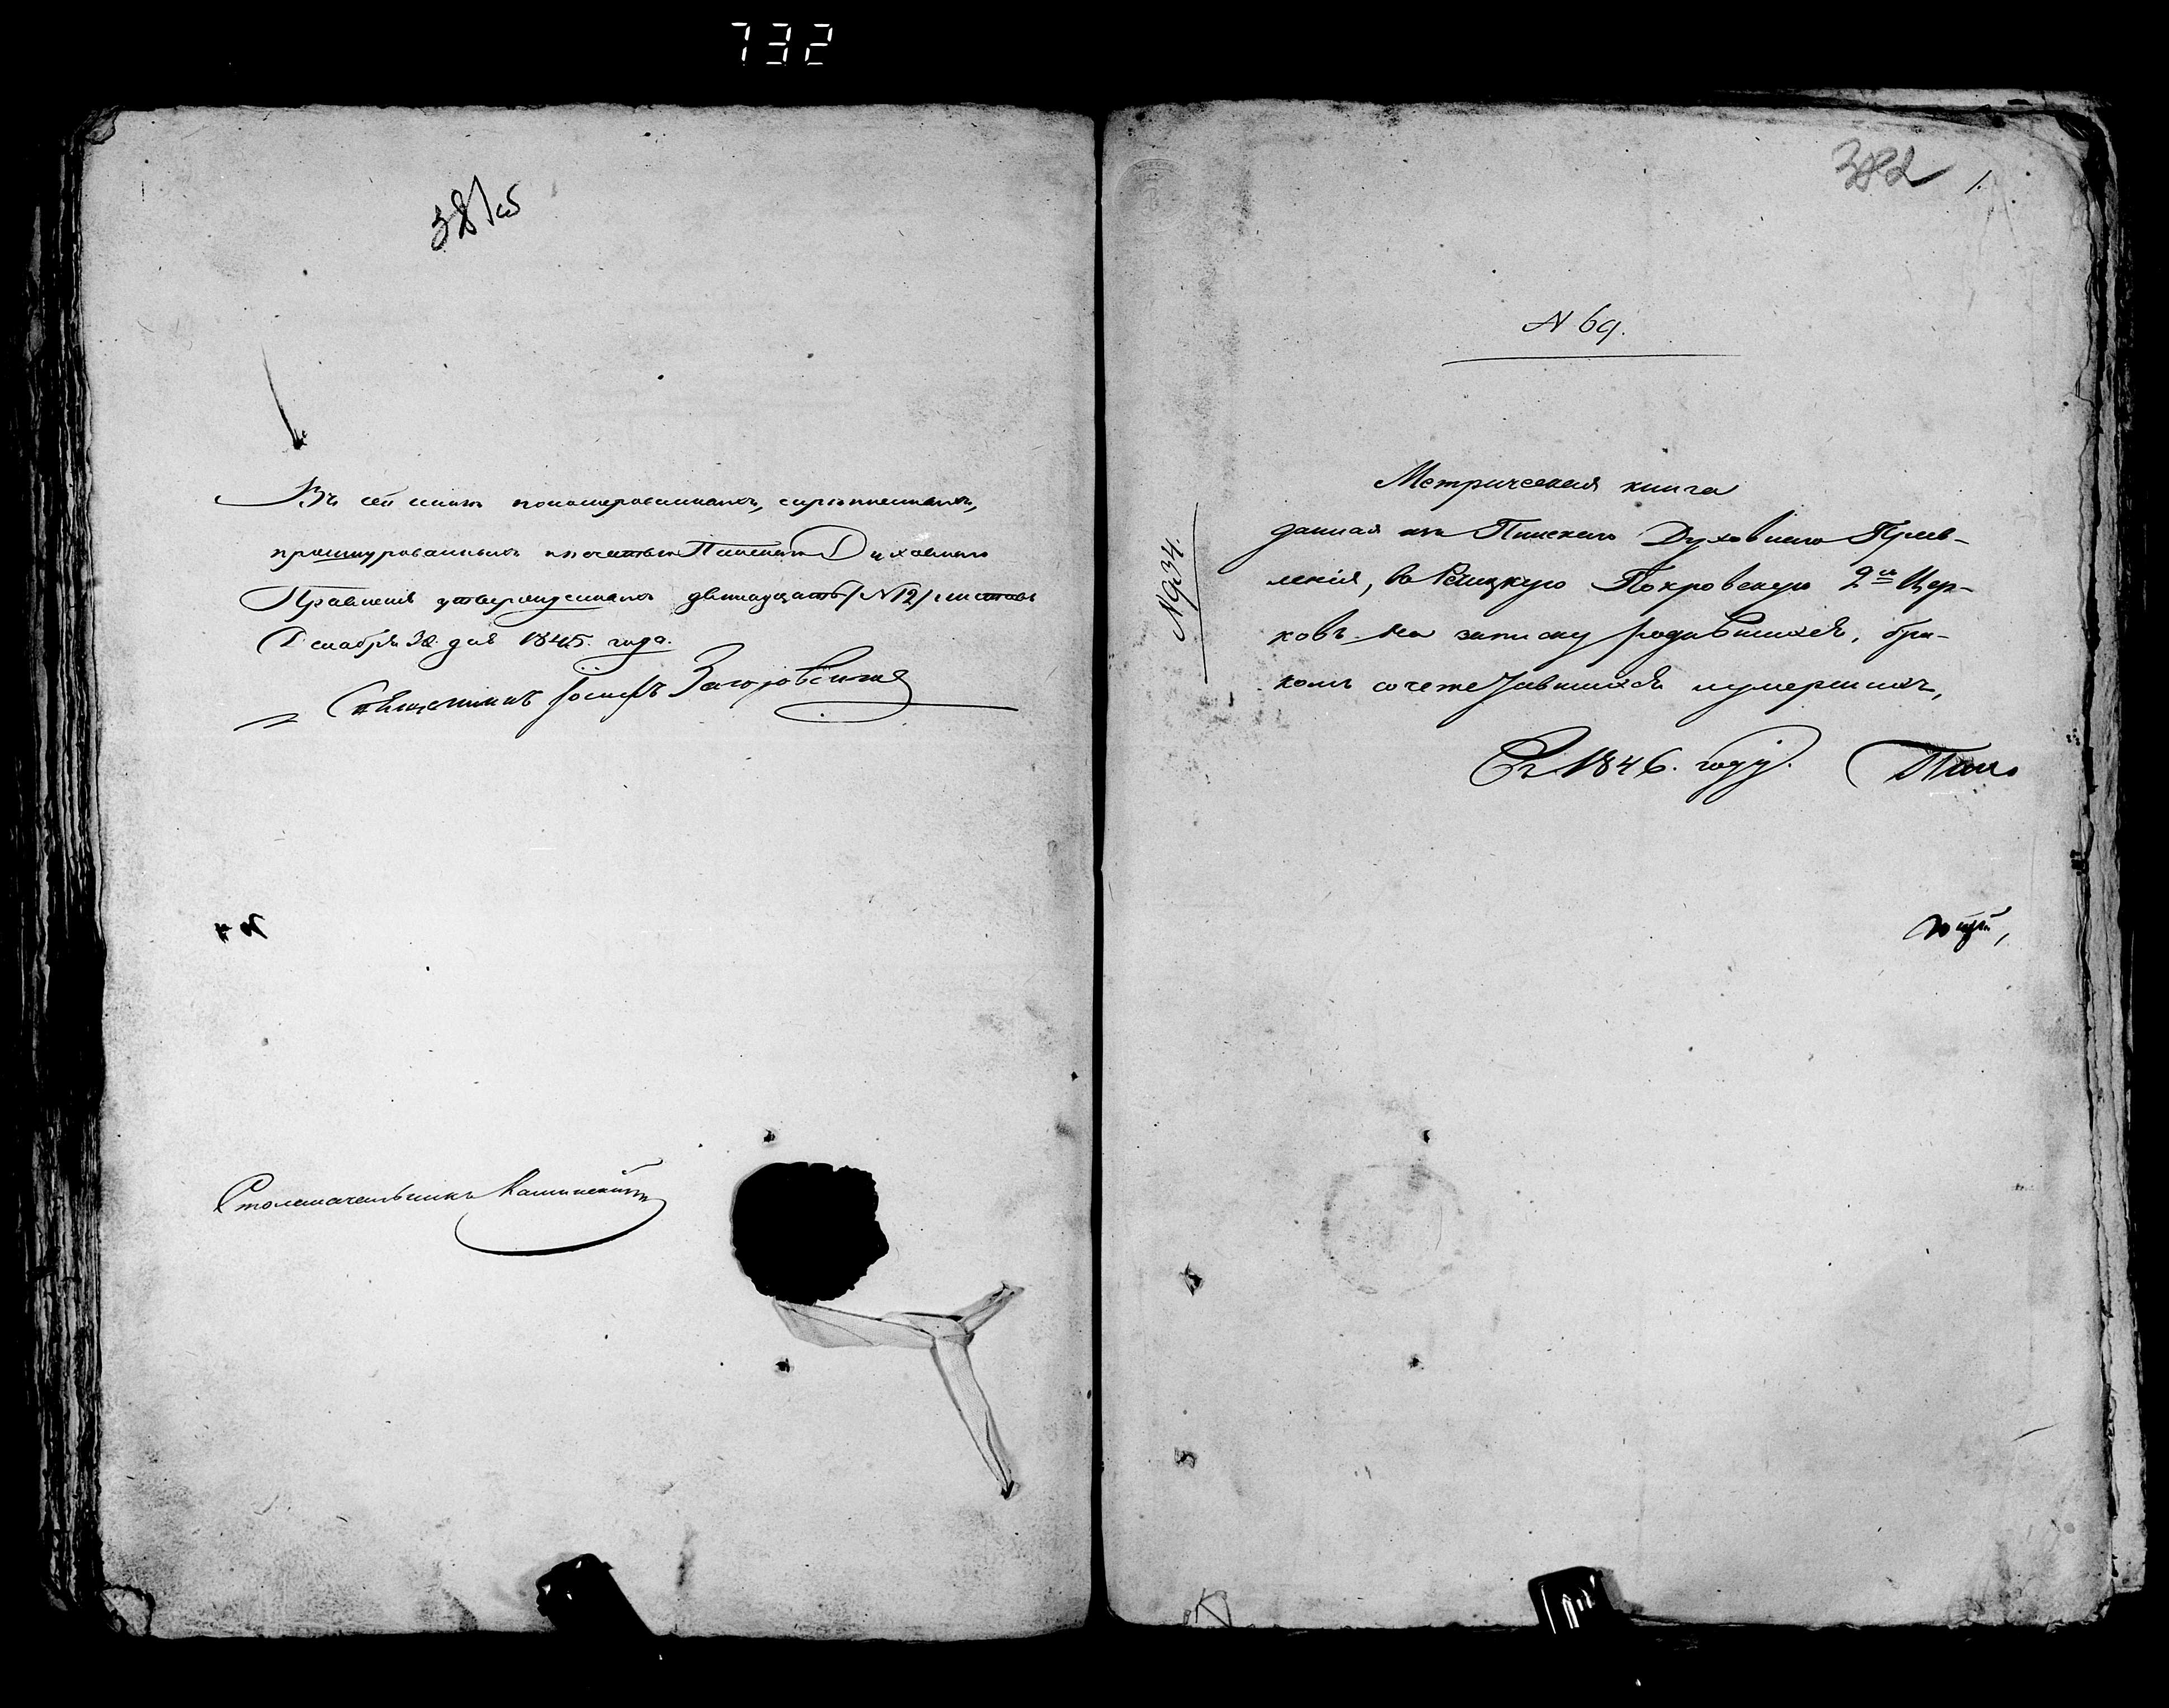 732
381об
Въ сей книгѣ пономерованныхъ, скрѣпленныхъ,
прошнурованныхъ и печатью Пинскаго Духовнаго
Правленія утвержденныхъ двенадцать /№12/ листовъ
Декабря 30 дня 1845. года.
Священникъ Іосифъ
Столоначальникъ Калинскій
382 1.
N 69.
N 934.
Метрическая книга
данная изъ Пинскаго Духовнаго Прав-
ленія, въ Речицкую Покровскую 2й Цер-
ковь на записку родившихся, бра-
комъ сочетавшихся и умершихъ,
Въ 1846. году.